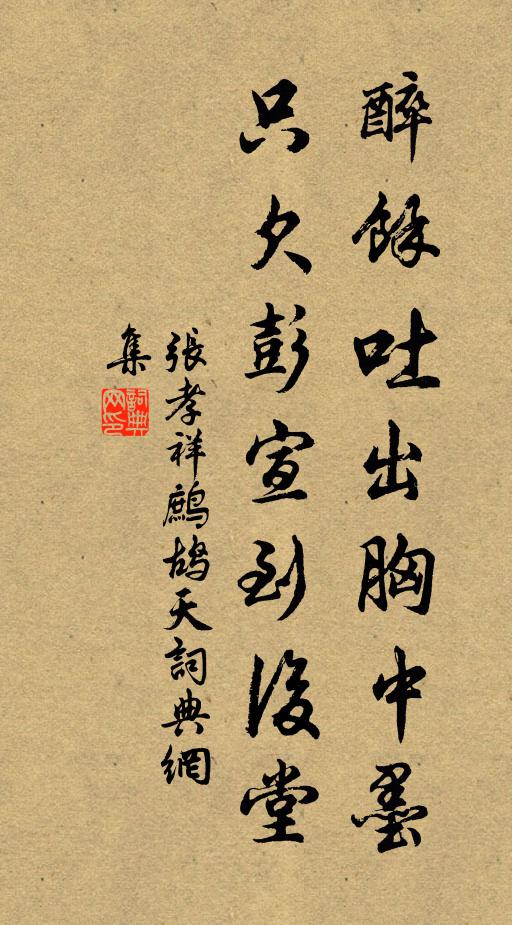 醉餘吐出胸中墨
只欠彭宣到後堂
張孝祥鷓鴣天詞典網
集
詞典網印